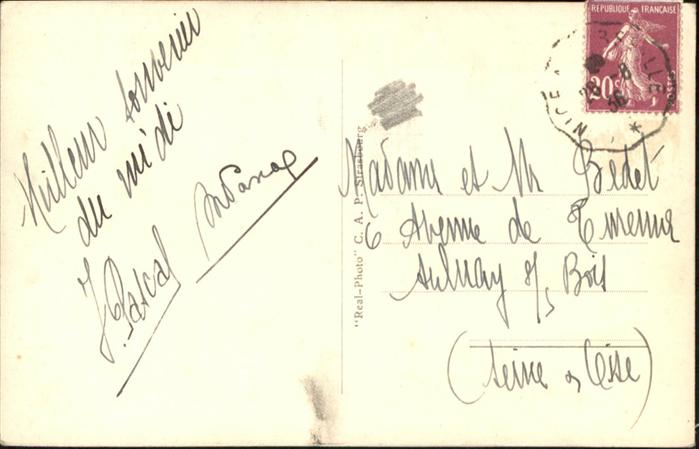 Meilleur souvenir
du midi
J. Pascal
"Real-Photo" C. A. P. Strasbourg
RÉPUBLIQUE FRANÇAISE
20c
POSTES
NICE A
28-8
36
Madame et Mr Bédet
6 Avenue de Turenne
Aulnay s/s Bois
(Seine & Oise)